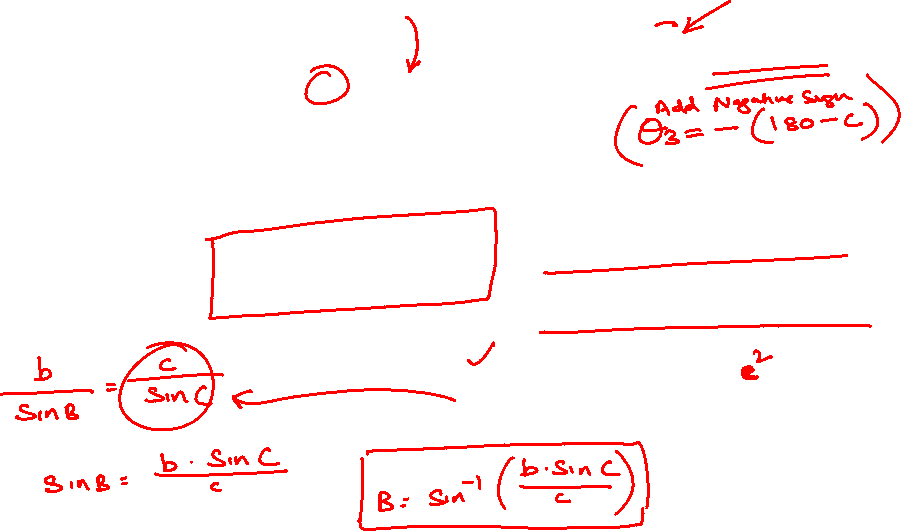 Add Negative Sign
(θ3 = - (180 - C))
e²
b/SinB = c/SinC
SinB = b · SinC/c
B = Sin⁻¹ (b·SinC/c)